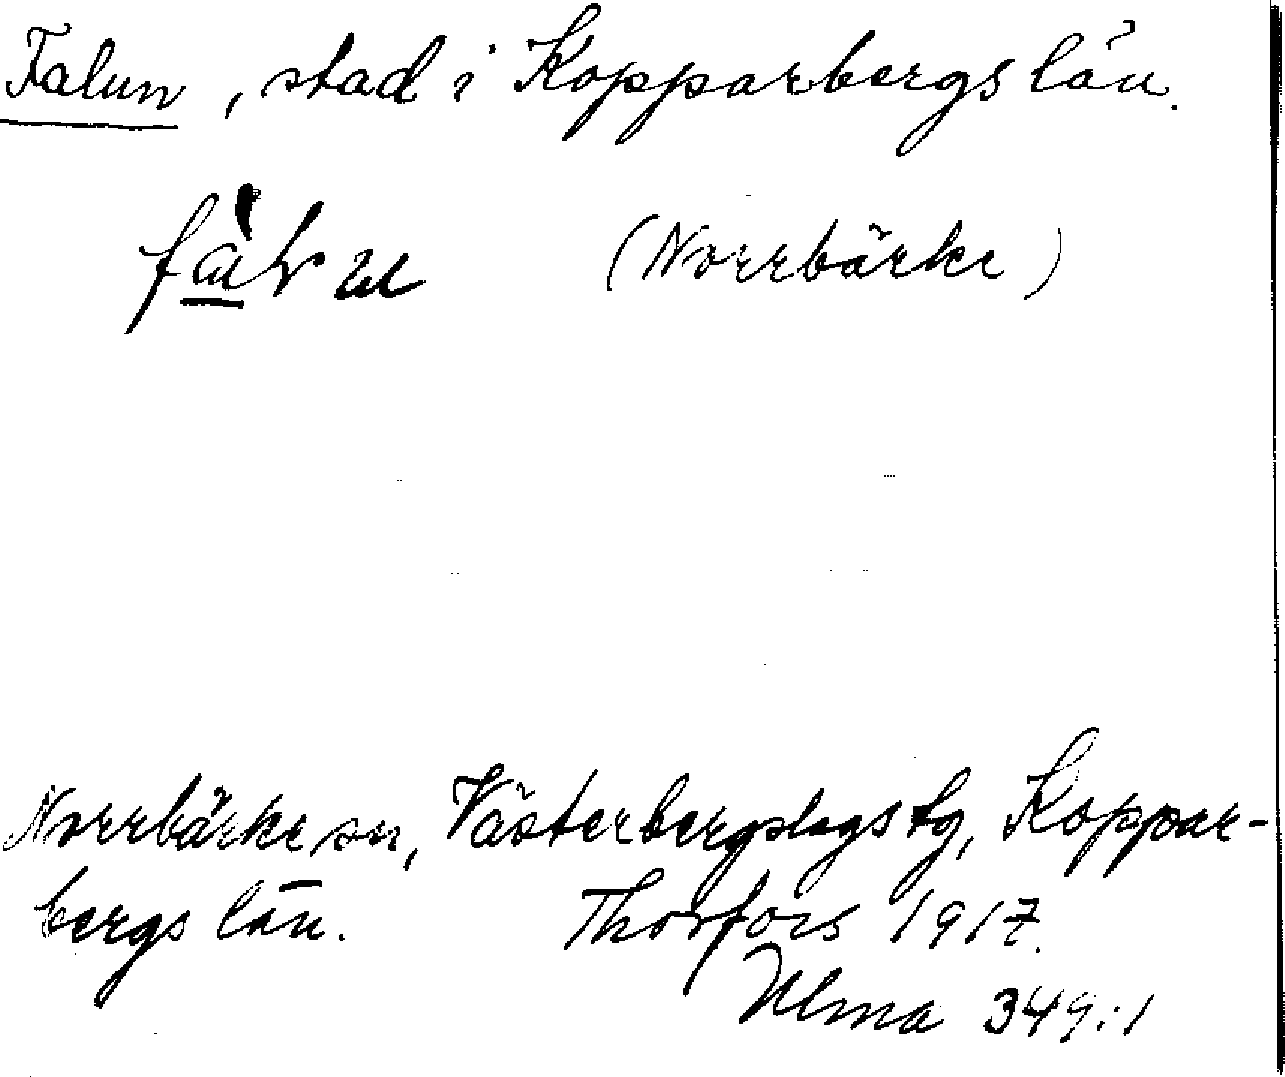 Falun, stad i Kopparbergs län.
(Norrbärke)
Norrbärke sn, Västerbergslags tg, Koppar-
bergs län. Thorfors 1917.
Ulma 349:1